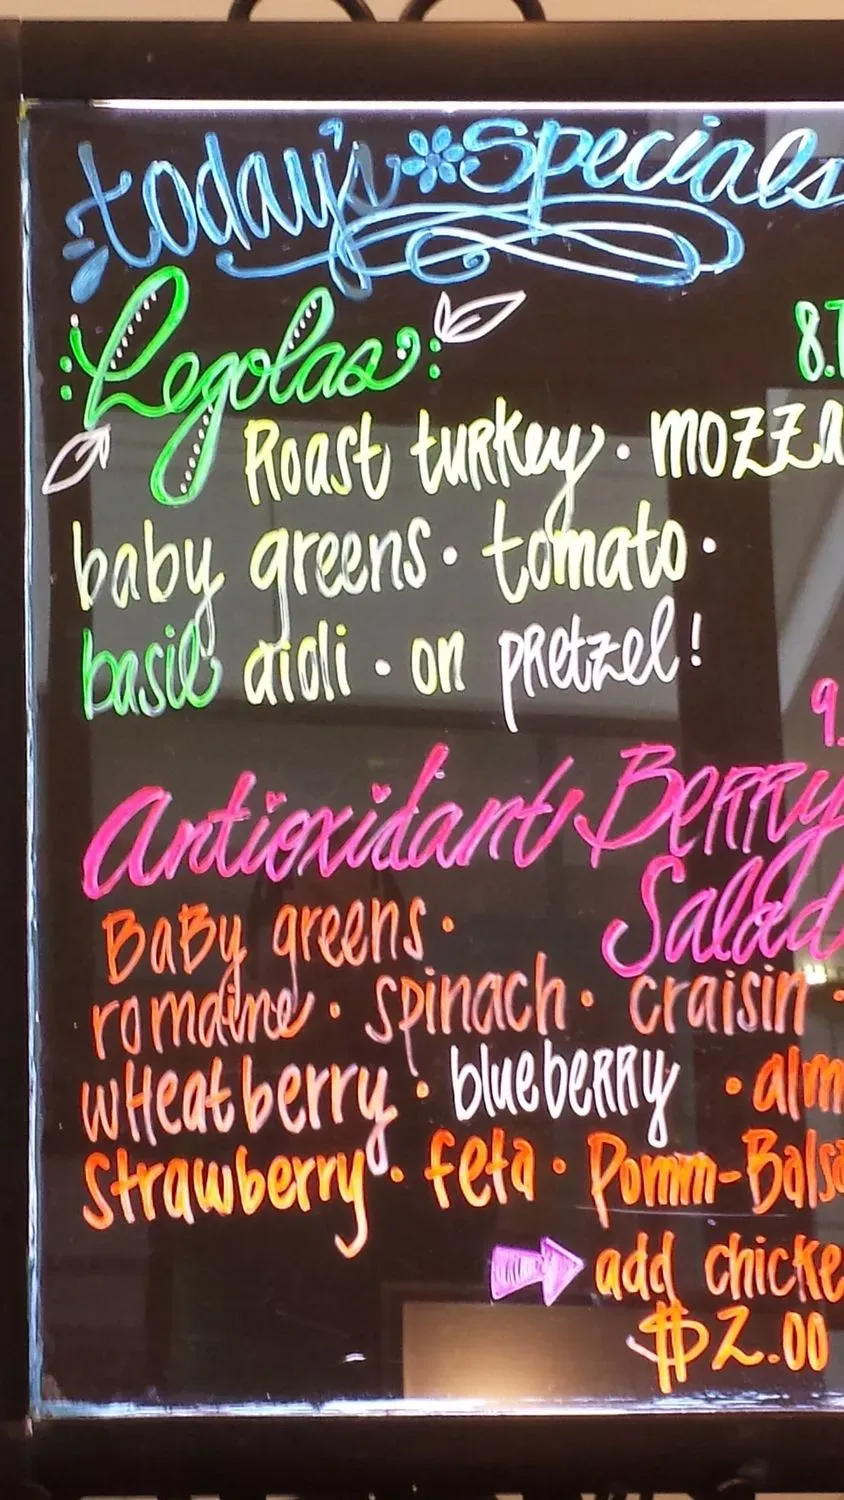 today's Specials
Legolas 8.
Roast turkey · mozza
baby greens · tomato ·
basil aioli · on pretzel!
9.
Antioxidant Berry
Salad
Baby greens ·
romaine · spinach · craisin ·
wheatberry · blueberry · alm
Strawberry · feta · Pomm-Balsa
add chicke
$2.00